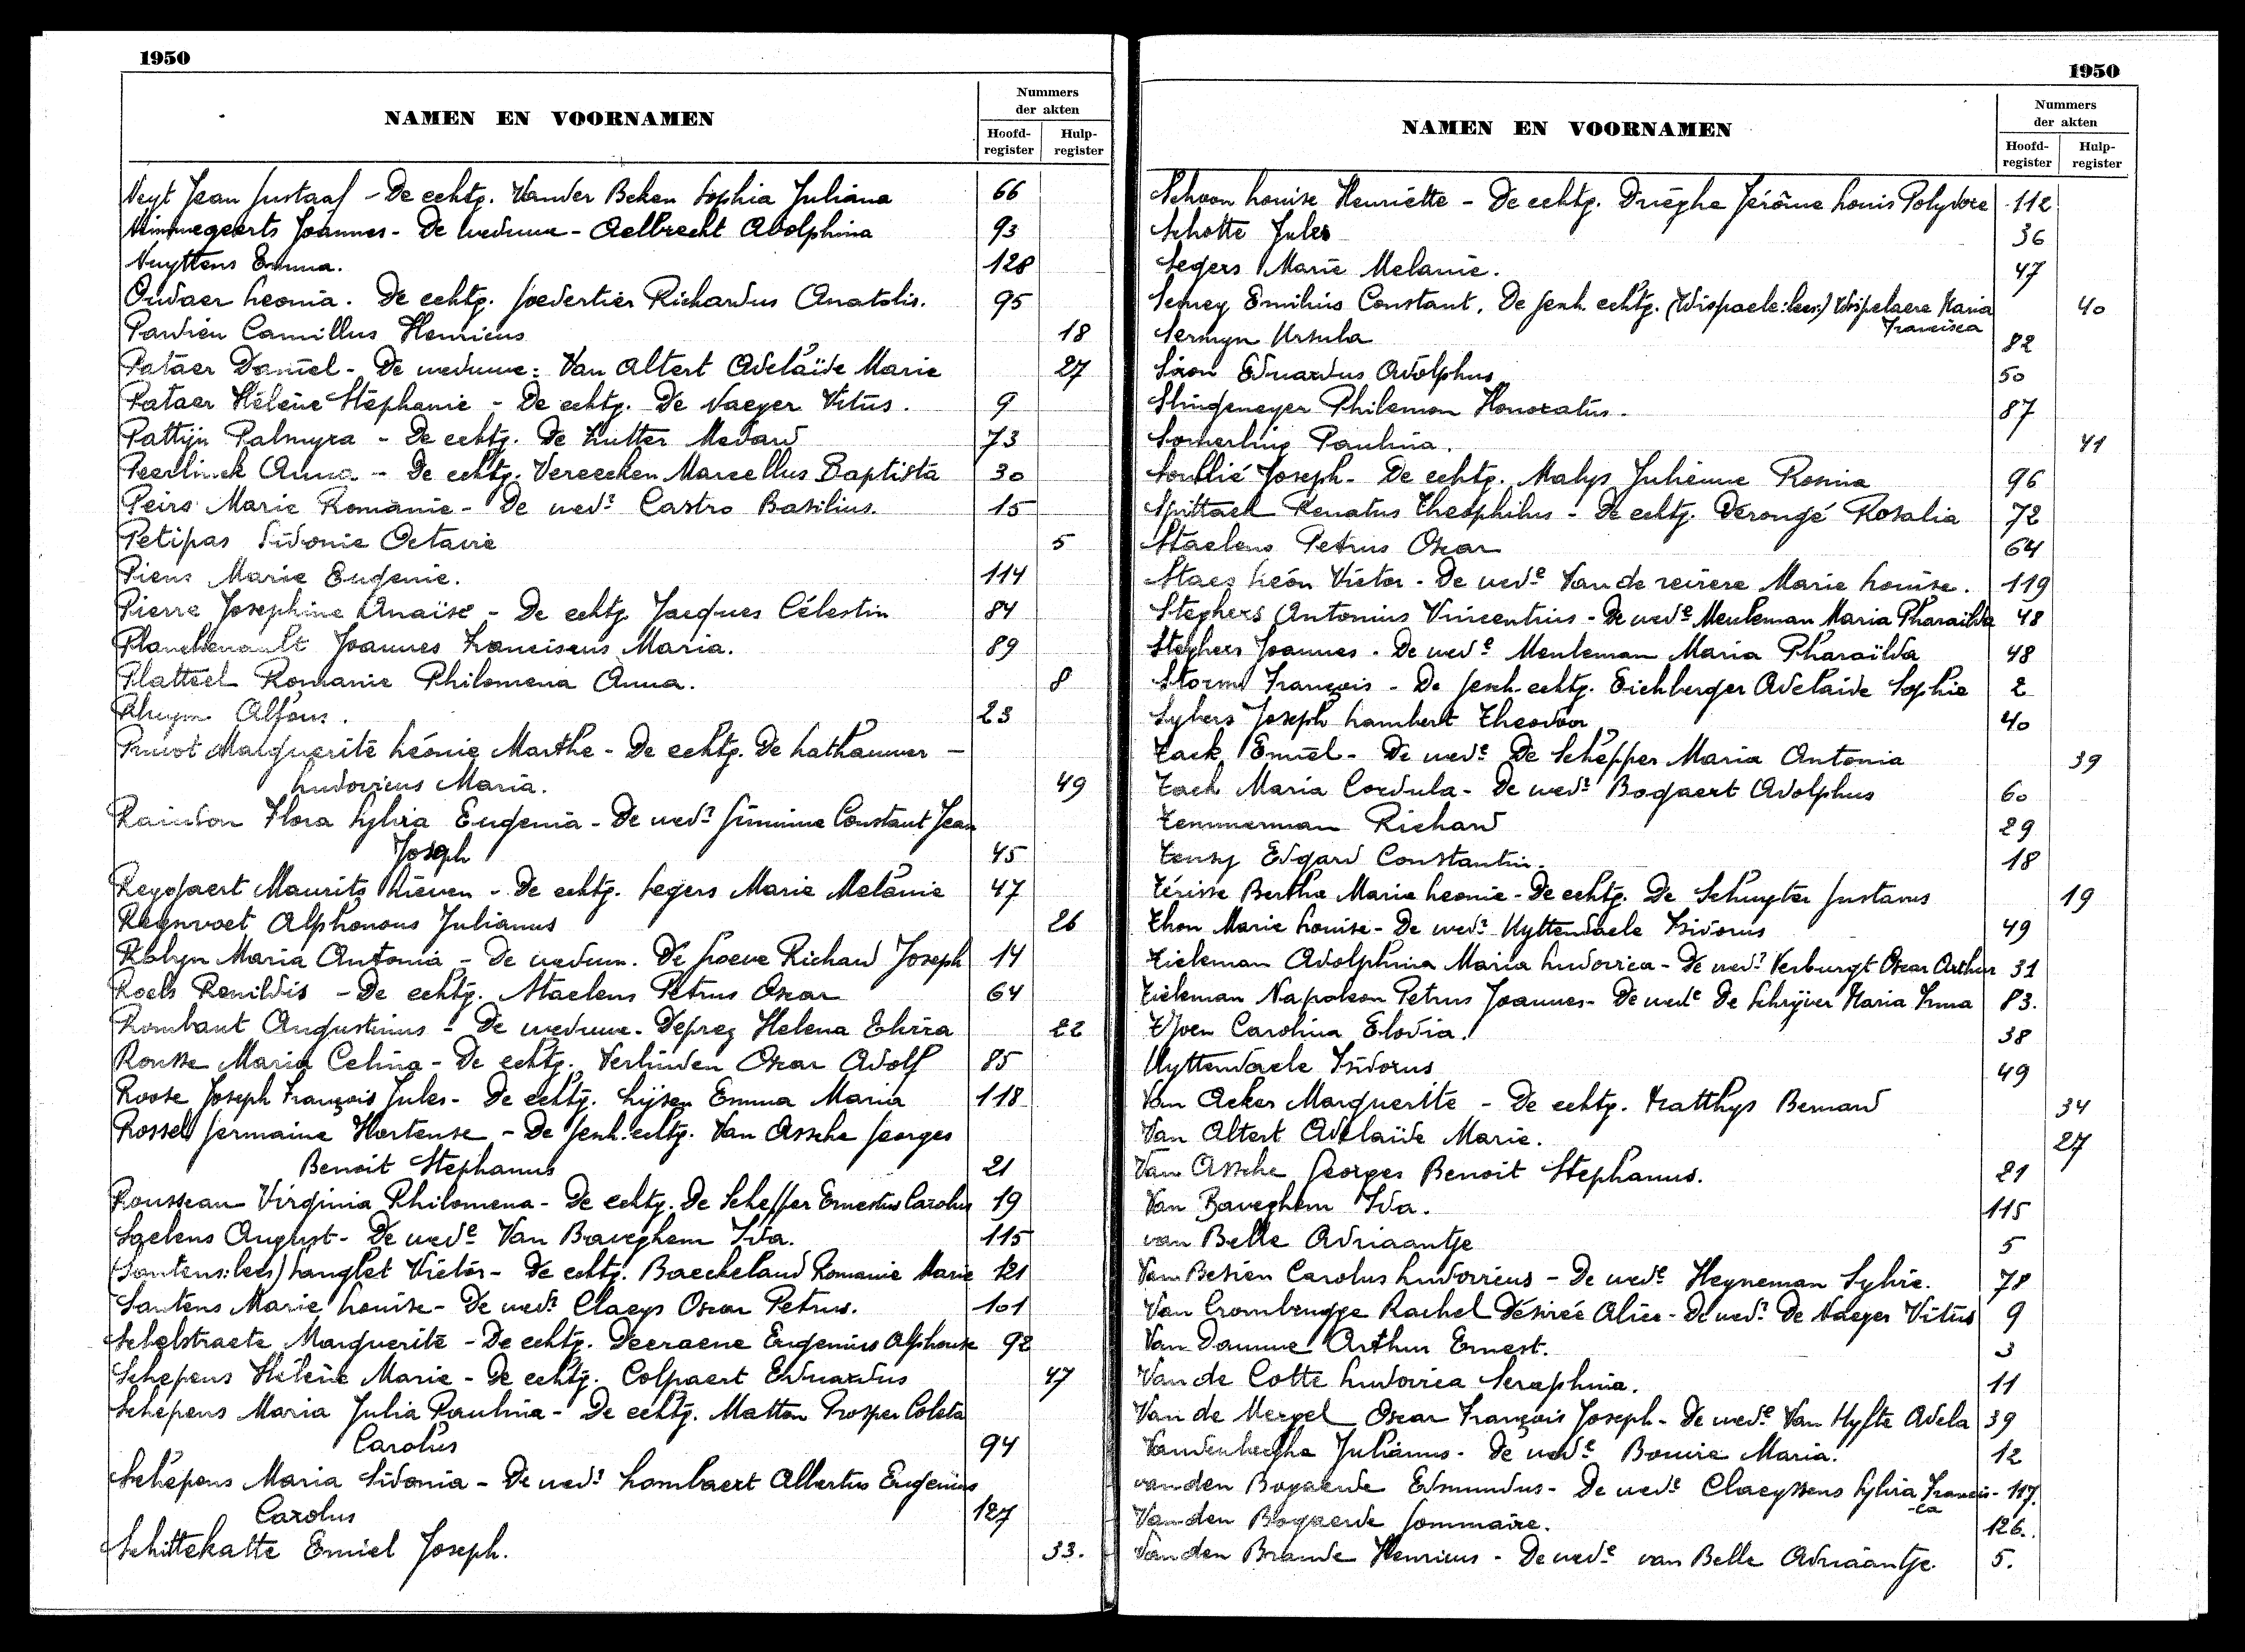 1950
NAMEN EN VOORNAMEN
Nummers der akten
Hoofd-register
Hulp-register
Neyt Jean Gustaaf - De echtg. Vander Beken Sophia Juliana 66
Nimmegeerts Joannes - De weduwe - Aelbrecht Adolphina 93
Nuyttens Emma. 128
Oudaer Leonia. De echtg. Goedertier Richardus Anatolis. 95
Pardien Camillus Henricus 18
Pataer Daniel - De weduwe: Van Altert Adelaïde Marie 27
Pataer Hélène Stéphanie - De echtg. De Naeyer Vitus. 9
Pattijn Palmyra - De echtg. De Kutter Medard 73
Peerlinck Anna - De echtg. Vereecken Marcellus Baptista 30
Peirs Marie Romanie - De wedr Castro Basilius. 15
Petipas Sidonie Octavie 5
Piens Marie Eugenie. 114
Pierre Josephine Anaïse - De echtg. Jacques Célestin 84
Planckenault Joannes Franciscus Maria. 89
Platteel Romanie Philomena Anna. 8
Pluym Alfons. 23
Pruvot Marguerite Léonie Marthe - De echtg. De Lathauwer -
Ludovicus Maria. 49
Raindon Flora Sylvia Eugenia - De wedr Gimmine Constant Jean
Joseph 45
Reygaert Maurits Lieven - De echtg. Segers Marie Melanie 47
Reynvoet Alphonsus Julianus 26
Robyn Maria Antonia - De weduwn. De Goeve Richard Joseph 14
Roels Renildis - De echtg. Staelens Petrus Oscar 64
Rombaut Augustinus - De weduwe - Deprez Helena Elvira 22
Rousse Maria Celina - De echtg. Verlinden Oscar Adolf 85
Roose Joseph François Jules - De echtg. Lijsen Emma Maria 118
Rossel Germaine Hortense - De gesch. echtg. Van Assche Georges
Benoit Stephanus 21
Rousseau Virginia Philomena - De echtg. De Schepper Ernestus Carolus 19
Saelens August - De wede Van Baveghem Ida. 115
(Santens: lees) Langlet Victor - De echtg. Baeckeland Romanie Marie 121
Santens Marie Louise - De wedr Claeys Oscar Petrus. 101
Schelstraete Marguerite - De echtg. Deeraene Eugenius Alphonse 92
Schepens Hélène Marie - De echtg. Colpaert Eduardus 47
Schepens Maria Julia Paulina - De echtg. Matton Prosper Coleta
Carolus 94
Schepens Maria Sidonia - De wedr Lombaert Albertus Eugenius
Carolus 127
Schittekatte Emiel Joseph. 33.
1950
NAMEN EN VOORNAMEN
Nummers der akten
Hoofd-register
Hulp-register
Schoon Louise Henriette - De echtg. Drieghe Jérôme Louis Polydore 112
Schotte Jules 36
Segers Marie Melanie. 47
Semey Emilius Constant. De gesch. echtg. (Wispaele: lees:) Wispelaere Maria 40
Francisca
Sermyn Ursula 82
Siron Eduardus Adolphus 50
Slingeneyer Philemon Honoratus. 87
Somerling Paulina. 41
Soublié Joseph - De echtg. Malys Julienne Rosina 96
Spittael Renatus Theophilus - De echtg. Derongé Rosalia 72
Staelens Petrus Oscar 64
Staes Léon Victor - De wede Van de reviere Marie Louise. 119
Steghers Antonius Vincentius - De wede Meuleman Maria Pharaïlda 48
Steghers Joannes - De wede Meuleman Maria Pharaïlda 48
Storms François - De gesch. echtg. Eichberger Adelaïde Sophie 2
Sybers Joseph Lambert Theodoor 40
Tack Emiel - De wede De Schepper Maria Antonia 39
Tack Maria Cordula - De wedr Bogaert Adolphus 60
Temmerman Richard 29
Tensy Edgard Constantin. 18
Térisse Bertha Maria Leonie - De echtg. De Schuyter Gustavus 19
Thon Marie Louise - De wedr Uyttendaele Isidorus 49
Tieleman Adolphina Maria Ludovica - De wedr Verburgt Oscar Arthur 31
Tieleman Napoleon Petrus Joannes - De wede De Schrijver Maria Irma 83.
Tjoen Carolina Elodia. 38
Uyttendaele Isidorus 49
Van Acker Marguerite - De echtg. Matthys Bernard 34
Van Altert Adelaïde Marie. 27
Van Assche Georges Benoit Stephanus. 21
Van Baveghem Ida. 115
van Belle Adriaantje 5
Van Besien Carolus Ludovicus - De wede Heyneman Sylvie. 78
Van Crombrugge Rachel Désirée Alice - De wedr De Naeyer Vitus 9
Van Damme Arthur Ernest. 3
Van de Cotte Ludovica Seraphina. 11
Van de Mergel Oscar François Joseph - De wede Van Hyfte Adela 39
Vandenheeghe Julianus - De wede Bouvie Maria. 12
van den Bogaerde Edmundus - De wede Claeyssens Sylvia Francis- 117.
-ca
Van den Bogaerde Gommaire. 126.
Van den Brande Henricus - De wede van Belle Adriaantje 5.